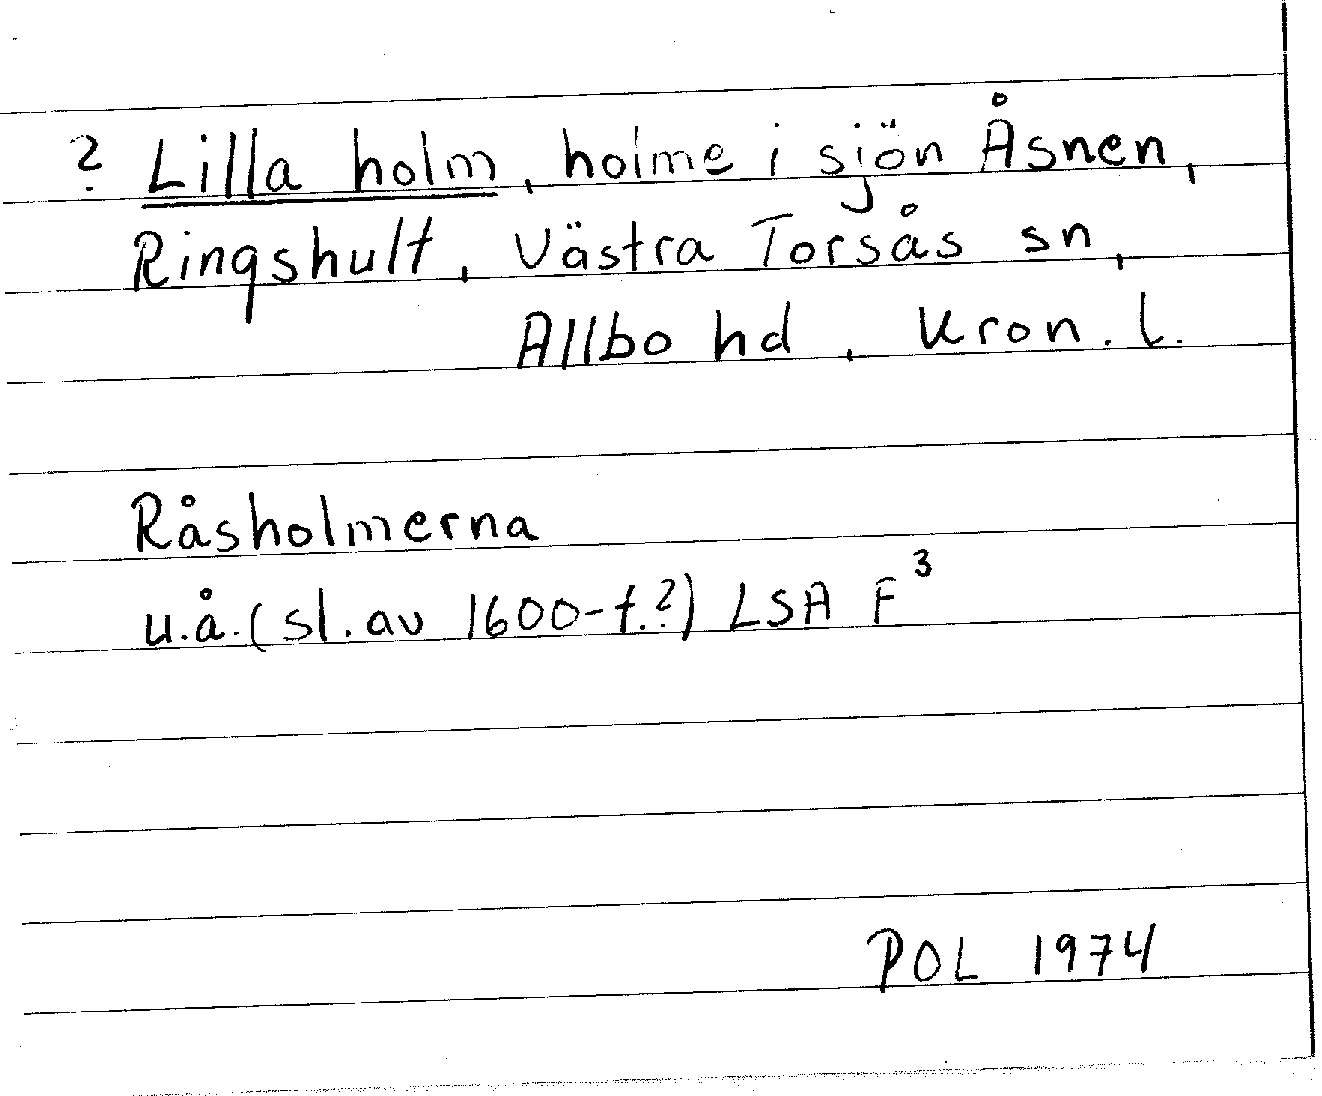 ? Lilla holm, holme i sjön Åsnen,
Ringshult, Västra Torsås sn,
Allbo hd, Kron. l.
Råsholmerna
u.å. (sl. av 1600-t.?) LSA F³
POL 1974